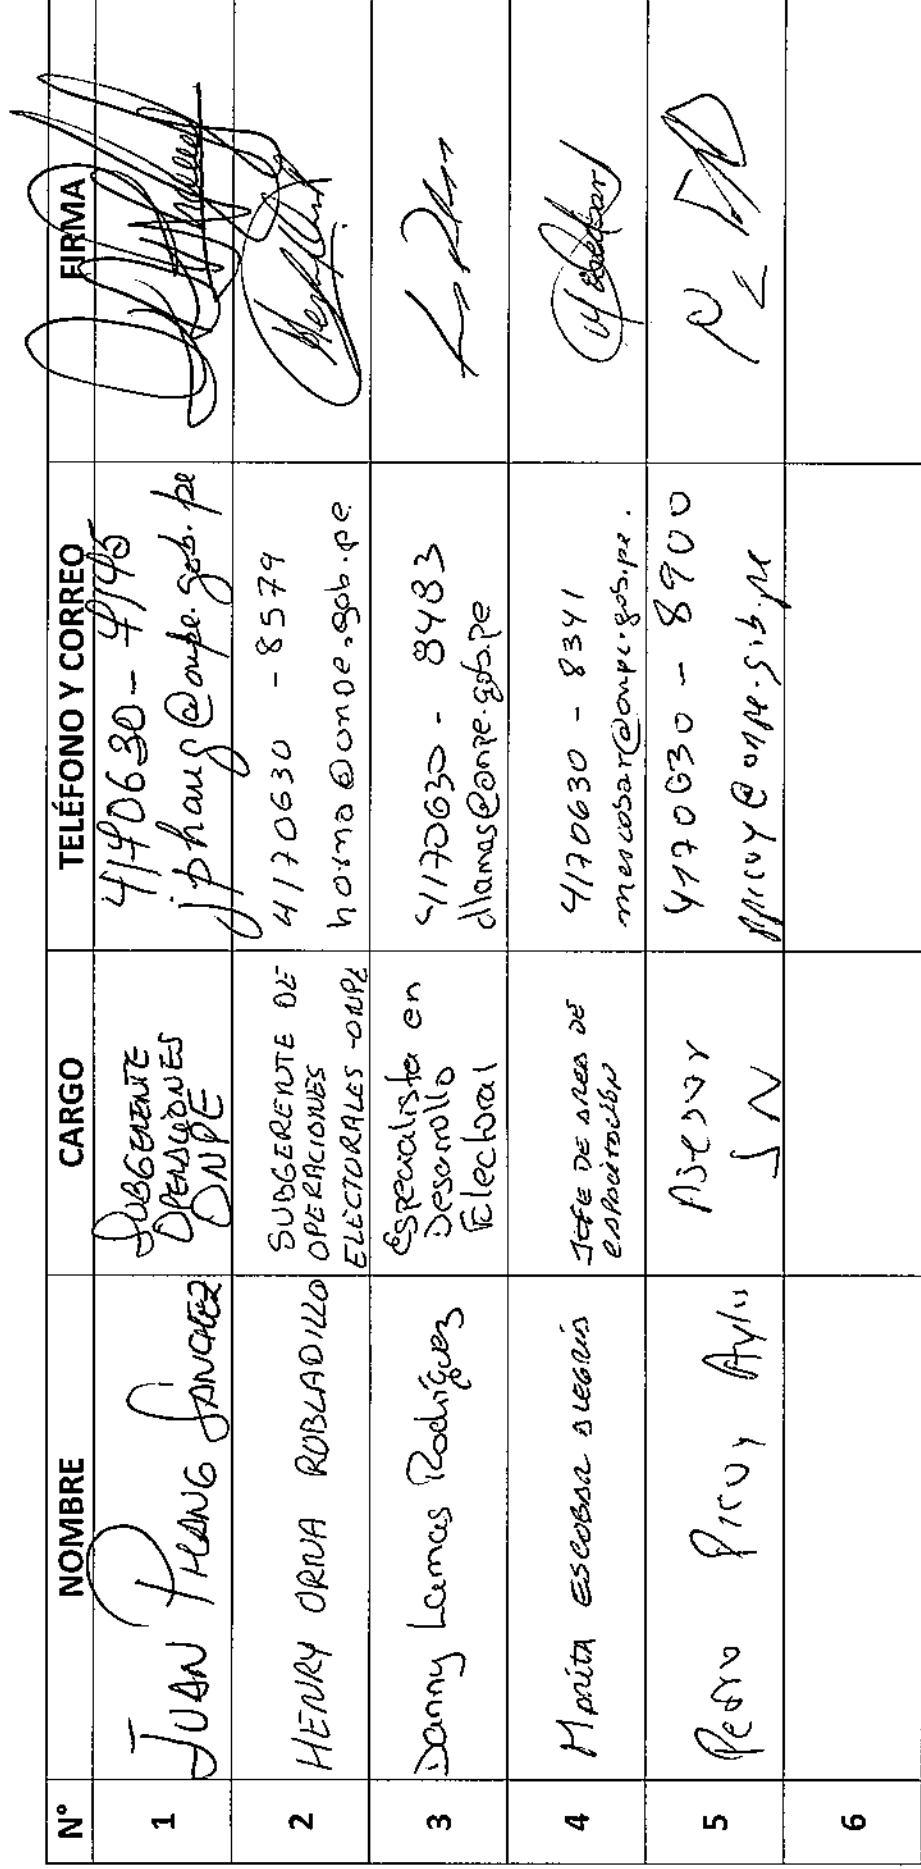 N° NOMBRE CARGO TELÉFONO Y CORREO FIRMA
1 JUAN PHANG SANCHEZ
SUBGERENTE
OPERACIONES
ONPE
4170630 - 4145
jphang@onpe.gob.pe
2 HENRY ORNA ROBLADILLO
SUBGERENTE DE
OPERACIONES
ELECTORALES - ONPE
4170630 - 8579
horna@onpe.gob.pe
3 Danny Lamas Rodríguez
Especialista en
Desarrollo
Electoral
4170630 - 8483
dlamas@onpe.gob.pe
4 Marita ESCOBAR ALEGRÍA
JEFE DE AREA DE
CAPACITACIÓN
4170630 - 8341
mescobar@onpe.gob.pe.
5 Pedro Picoy
Asesor
4170630 - 8900
ppicoy@onpe.gob.pe
6